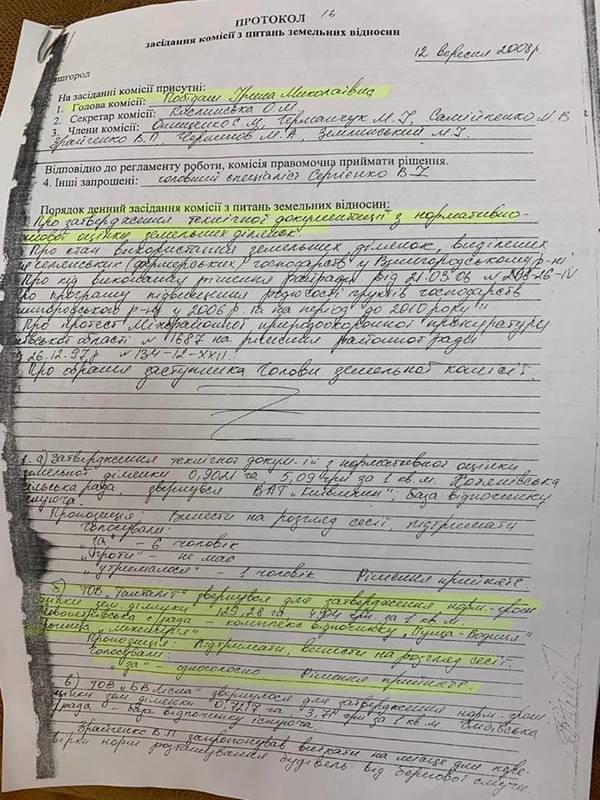 16
ПРОТОКОЛ
засідання комісії з питань земельних відносин
12 вересня 2008р.
шгород
На засіданні комісії присутні:
1. Голова комісії: Побідаш Ірина Миколаївна
2. Секретар комісії: О.М.
3. Члени комісії: Онищенко С.М, Германчук М.Г, Самійленко М.В
Крайченко В.П, М.А, Земнинський М.Г.
Відповідно до регламенту роботи, комісія правомочна приймати рішення.
4. Інші запрошені: головний спеціаліст Сергієнко В.І
Порядок денний засідання комісії з питань земельних відносин:
Про затвердження технічної документації з нормативно-
грошової оцінки земельних ділянок.
Про стан використання земельних ділянок, виділених
селянських (фермерських) господарств у Вишгородському р-ні
Про хід виконання рішення райради від 21.03.06 № 208-26-IV
Про програму підвищення родючості ґрунтів господарств
Вишгородського р-ну у 2006 р. та на період до 2010 року"
Про протест Міжрайонної природоохоронної прокуратури
Київської області № 1687 на рішення районної ради
з 26.12.97р № 134-12-XXII.
Про обрання заступника Голови земельної комісії.
1. а) Затвердження технічної докум-ії з нормативної оцінки
земельної ділянки 0,9021 га, 5,09 грн за 1 кв.м. Хотянівська
сільська рада, звернувся ВАТ „ "; база відпочинку
існуюча.
Пропозиція: Винести на розгляд сесії, підтримати
Голосували:
„за" – 6 чоловік
„проти" – не має
„утрималося" – 1 чоловік Рішення прийнято
б) ТОВ „Танталіт" звернувся для затвердження норм-грош
оцінки зем. ділянки 129,28 га 4,04 грн за 1 кв.м.
с/рада – комплекс відпочинку „Пуща-Водиця"
Пропозиція: Підтримати, винести на розгляд сесії.
Голосували:
„за" – одноголосно Рішення прийнято.
в) ТОВ „БВ Лісна" звернулося для затвердження норм-грош.
оцінки зем ділянки 0,7217 га 3,71 грн за 1 кв.м.
рада – база відпочинку існуюча.
Крайченко В.П запропонував виїхати на місце для пере-
вірки норм розташування будівель від берегової смуги.